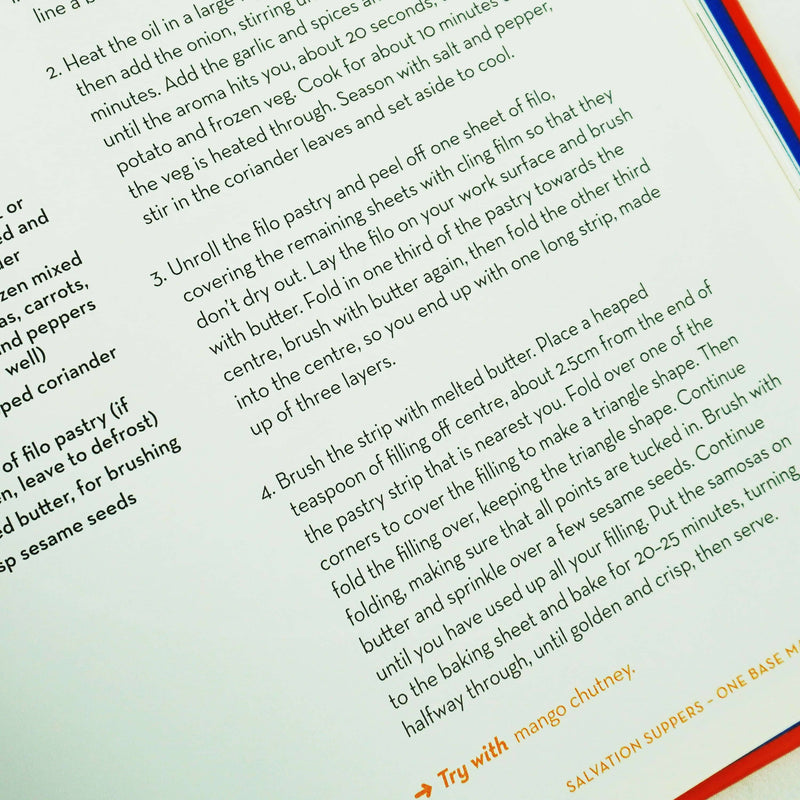 line a b
2. Heat the oil in a large
then add the onion, stirring
minutes. Add the garlic and spices
until the aroma hits you, about 20 seconds,
potato and frozen veg. Cook for about 10 minutes
the veg is heated through. Season with salt and pepper,
stir in the coriander leaves and set aside to cool.
3. Unroll the filo pastry and peel off one sheet of filo,
covering the remaining sheets with cling film so that they
don't dry out. Lay the filo on your work surface and brush
with butter. Fold in one third of the pastry towards the
centre, brush with butter again, then fold the other third
into the centre, so you end up with one long strip, made
up of three layers.
4. Brush the strip with melted butter. Place a heaped
teaspoon of filling off centre, about 2.5cm from the end of
the pastry strip that is nearest you. Fold over one of the
corners to cover the filling to make a triangle shape. Then
fold the filling over, keeping the triangle shape. Continue
folding, making sure that all points are tucked in. Brush with
butter and sprinkle over a few sesame seeds. Continue
until you have used up all your filling. Put the samosas on
to the baking sheet and bake for 20–25 minutes, turning
halfway through, until golden and crisp, then serve.
→ Try with mango chutney.
SALVATION SUPPERS – ONE BASE MA
or
ed and
der
zen mixed
as, carrots,
nd peppers
well)
ped coriander
of filo pastry (if
en, leave to defrost)
ed butter, for brushing
sp sesame seeds